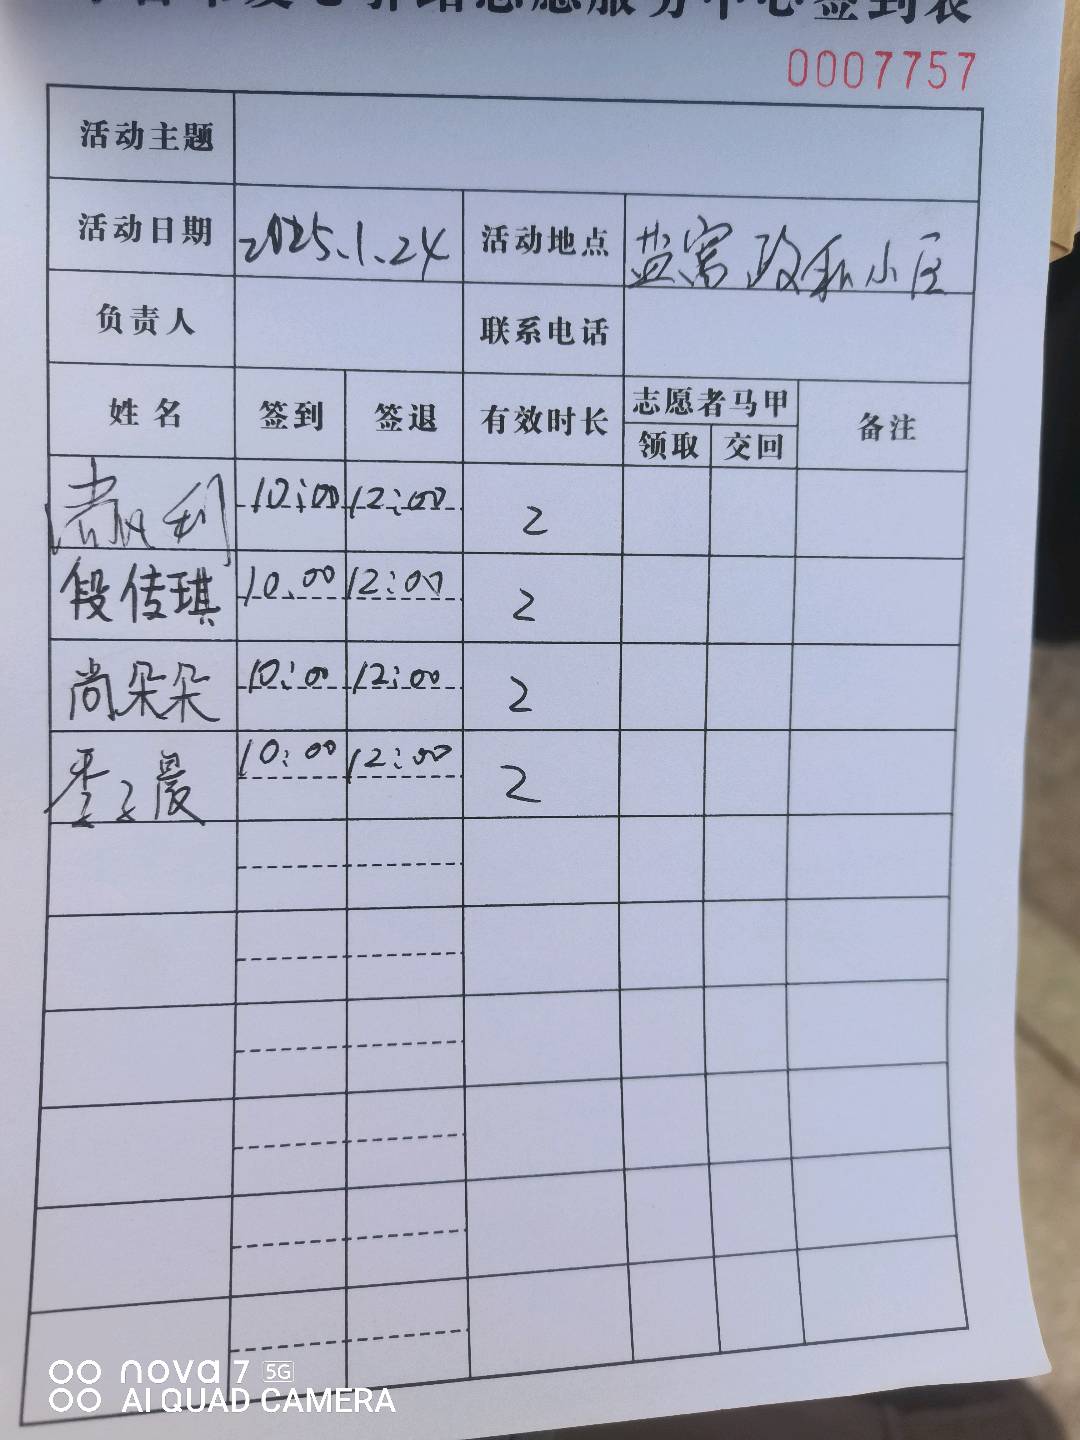 志愿服务中心签到表
0007757
活动主题
活动日期 2025.1.24 活动地点 盐窝政和小区
负责人 联系电话
姓名 签到 签退 有效时长 志愿者马甲 备注
领取 交回
利 10:00 12:00 2
段传琪 10:00 12:00 2
尚朵朵 10:00 12:00 2
晨 10:00 12:00 2
nova 7 5G
AI QUAD CAMERA